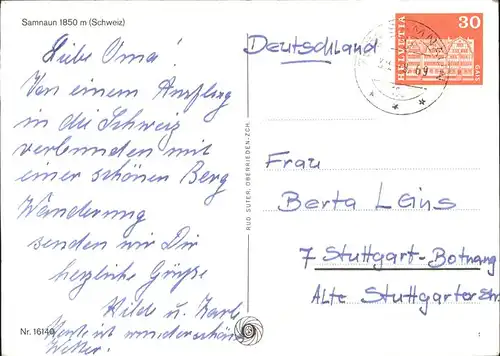 Samnaun 1850 m (Schweiz)
Liebe Oma!
Von einem Ausflug
in die Schweiz
verbunden mit
einer schönen Berg
Wanderung
senden wir Dir
herzliche Grüße
Hilde u. Karl
Heute ist wunderschönes
Wetter.
Nr. 16140
RUD. SUTER, OBERRIEDEN-ZCH.
Deutschland
HELVETIA
30
Frau
Berta Leins
7 Stuttgart-Botnang
Alte Stuttgarter Str